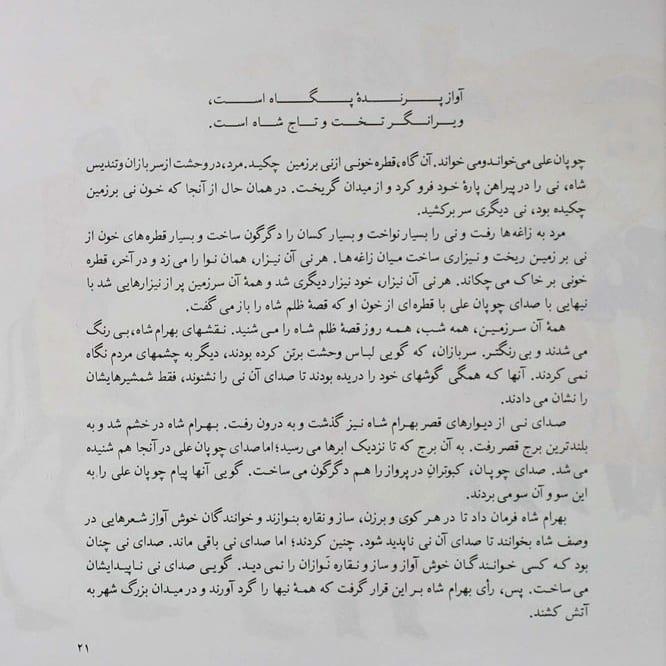 آواز پرندهٔ پگاه است،
ویرانگر تخت و تاج شاه است.
چوپان علی می‌خواند و می خواند. آن گاه، قطره خونی از نی بر زمین چکید. مرد، در وحشت از سربازان و تندیس
شاه، نی را در پیراهن پارهٔ خود فرو کرد و از میدان گریخت. در همان حال از آنجا که خون نی بر زمین
چکیده بود، نی دیگری سر برکشید.
مرد به زاغه‌ها رفت و نی را بسیار نواخت و بسیار کسان را دگرگون ساخت و بسیار قطره‌های خون از
نی بر زمین ریخت و نیزاری ساخت میان زاغه‌ها. هر نی آن نیزار، همان نوا را می زد و در آخر، قطره
خونی بر خاک می چکاند. هر نی آن نیزار، خود نیزار دیگری شد و همهٔ آن سرزمین پر از نیزارهایی شد با
نیهایی با صدای چوپان علی با قطره‌ای از خون او که قصهٔ ظلم شاه را باز می گفت.
همهٔ آن سرزمین، همه شب، همه روز قصهٔ ظلم شاه را می شنید. نقشهای بهرام شاه، بی رنگ
می شدند و بی رنگتر. سربازان، که گویی لباس وحشت برتن کرده بودند، دیگر به چشمهای مردم نگاه
نمی کردند. آنها که همگی گوشهای خود را دریده بودند تا صدای آن نی را نشنوند، فقط شمشیرهایشان
را نشان می دادند.
صدای نی از دیوارهای قصر بهرام شاه نیز گذشت و به درون رفت. بهرام شاه در خشم شد و به
بلندترین برج قصر رفت. به آن برج که تا نزدیک ابرها می رسید؛ اما صدای چوپان علی در آنجا هم شنیده
می شد. صدای چوپان، کبوترانِ در پرواز را هم دگرگون می ساخت. گویی آنها پیام چوپان علی را به
این سو و آن سو می بردند.
بهرام شاه فرمان داد تا در هر کوی و برزن، ساز و نقاره بنوازند و خوانندگان خوش آواز شعرهایی در
وصف شاه بخوانند تا صدای آن نی ناپدید شود. چنین کردند؛ اما صدای نی باقی ماند. صدای نی چنان
بود که کسی خوانندگان خوش آواز و ساز و نقاره نَوازان را نمی دید. گویی صدای نی ناپیدایشان
می ساخت. پس، رأی بهرام شاه بر این قرار گرفت که همهٔ نیها را گرد آورند و در میدان بزرگ شهر به
آتش کشند.
۲۱